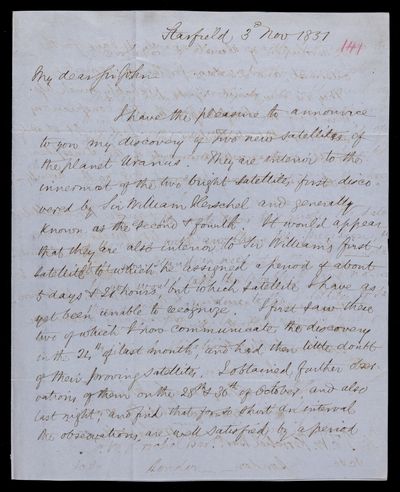 Starfield, 3d Nov 1851
141
My dear Sir John
I have the pleasure to announce
to you my discovery of two new satellites of
the planet Uranus. They are interior to the
innermost of the two bright satellites first disco
vered by Sir William Herschel and generally
known as the second & fourth. It would appear
that they are also interior to Sir William's first
satellite to which he assigned a period of about
5 days & 21 hours, but which satellite I have as
yet been unable to recognize. I first saw these
two of which I now communicate the discovery
in the 24th of last month, and had then little doubt
of their proving satellites. I obtained further obser
vations of them on the 28th & 30th of October, and also
last night; and find that for so short an interval
the observations are well satisfied by a period